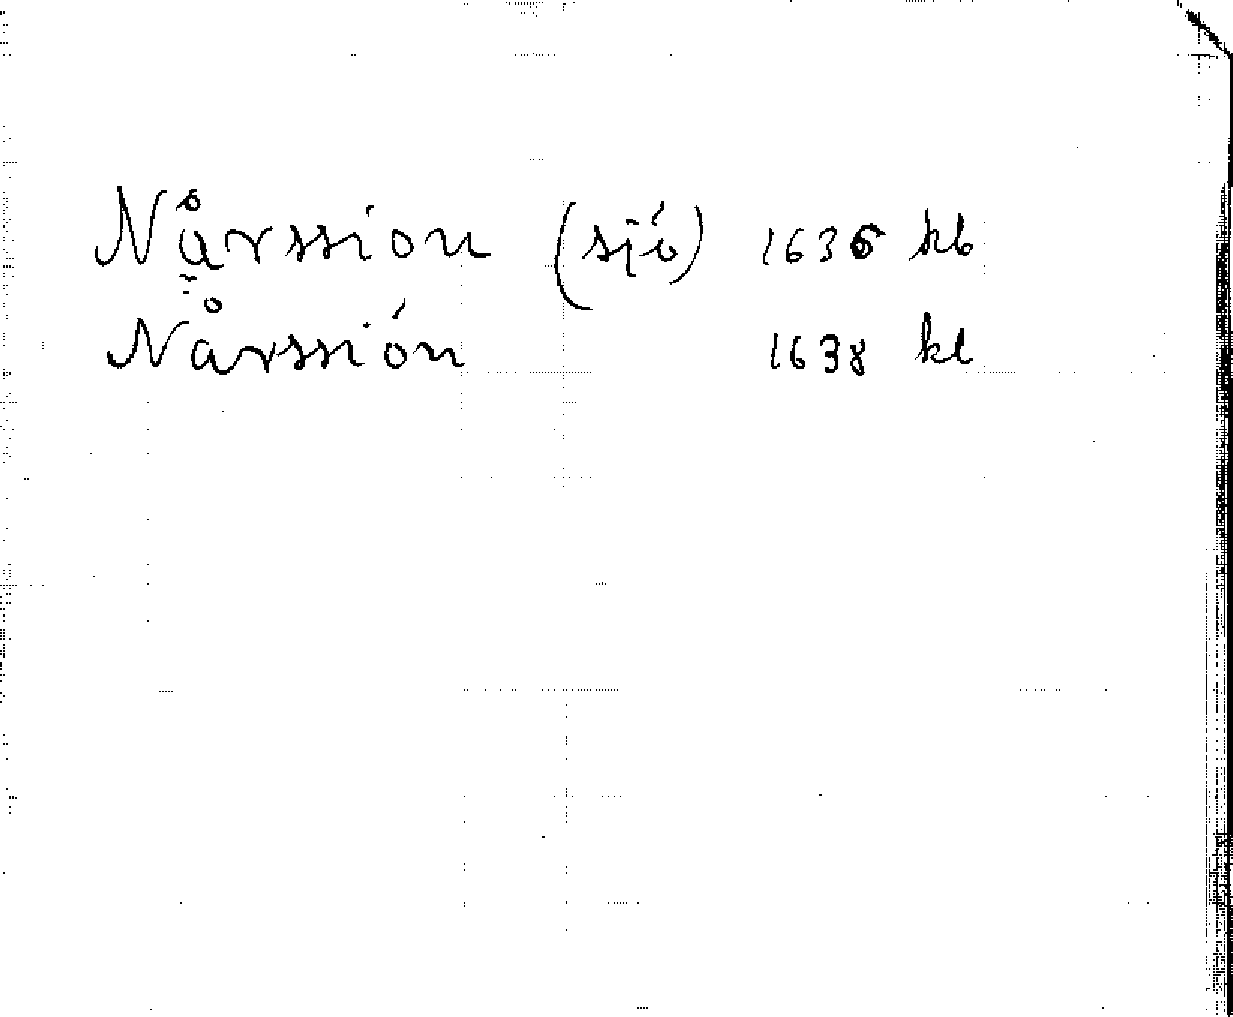 Nårssion (sjö) 1636 kb
Nårssión 1638 kl